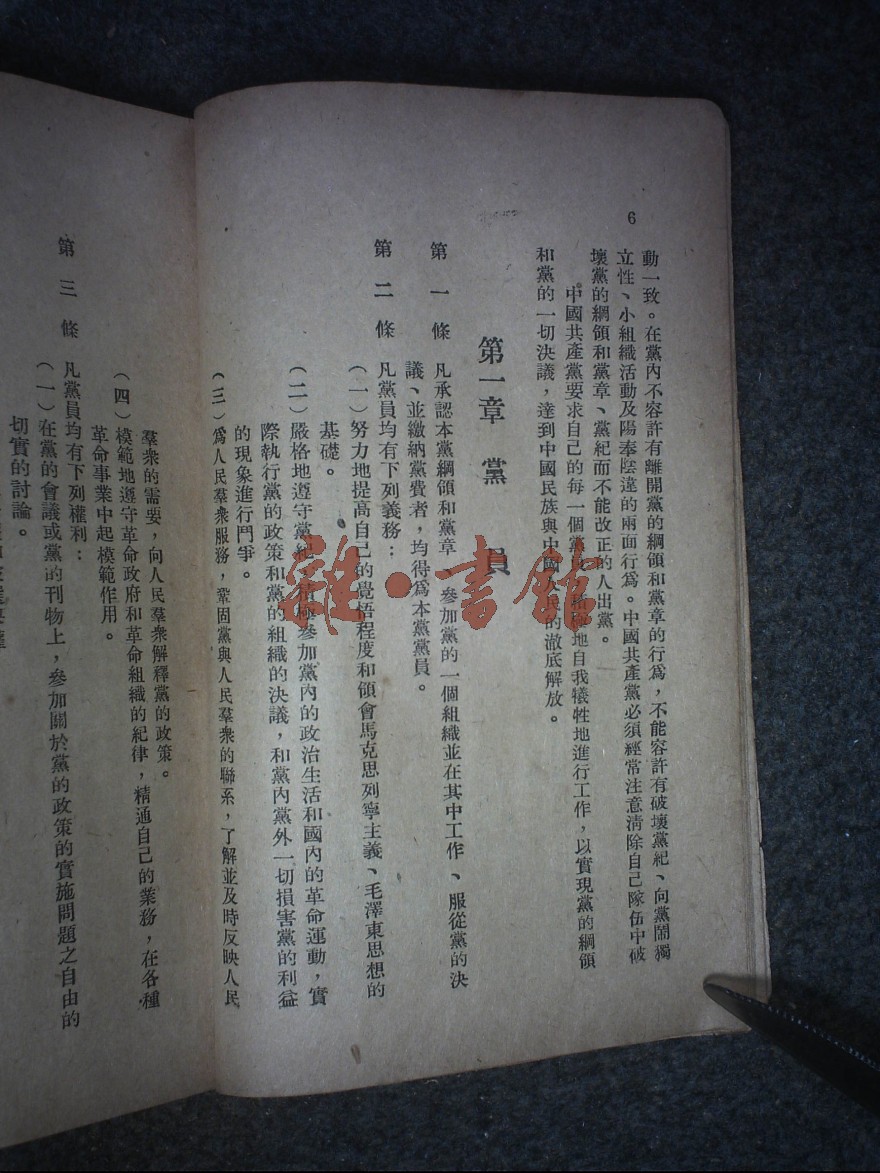 6
動一致。在黨內不容許有離開黨的綱領和黨章的行爲，不能容許有破壞黨紀、向黨鬧獨
立性、小組織活動及陽奉陰違的兩面行爲。中國共產黨必須經常注意淸除自己隊伍中破
壞黨的綱領和黨章、黨紀而不能改正的人出黨。
中國共產黨要求自己的每一個黨員積極地自我犧牲地進行工作，以實現黨的綱領
和黨的一切決議，達到中國民族與中國人民的澈底解放。
第一章 黨 員
第一條 凡承認本黨綱領和黨章、參加黨的一個組織並在其中工作、服從黨的決
議、並繳納黨費者，均得爲本黨黨員。
第二條 凡黨員均有下列義務：
（一）努力地提高自己的覺悟程度和領會馬克思列寧主義、毛澤東思想的
基礎。
（二）嚴格地遵守黨紀，積極參加黨內的政治生活和國內的革命運動，實
際執行黨的政策和黨的組織的決議，和黨內黨外一切損害黨的利益
的現象進行鬥爭。
（三）爲人民羣衆服務，鞏固黨與人民羣衆的聯系，了解並及時反映人民
羣衆的需要，向人民羣衆解釋黨的政策。
（四）模範地遵守革命政府和革命組織的紀律，精通自己的業務，在各種
革命事業中起模範作用。
第三條 凡黨員均有下列權利：
（一）在黨的會議或黨的刊物上，參加關於黨的政策的實施問題之自由的
切實的討論。
雜·書館